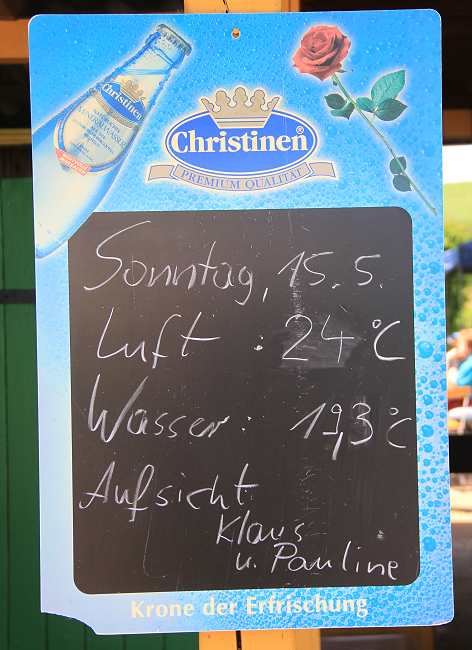 Christinen
MINERALWASSER
Christinen®
PREMIUM QUALITÄT
Sonntag, 15.5.
Luft : 24 °C
Wasser: 19,3 °C
Aufsicht
Klaus
u. Pauline
Krone der Erfrischung